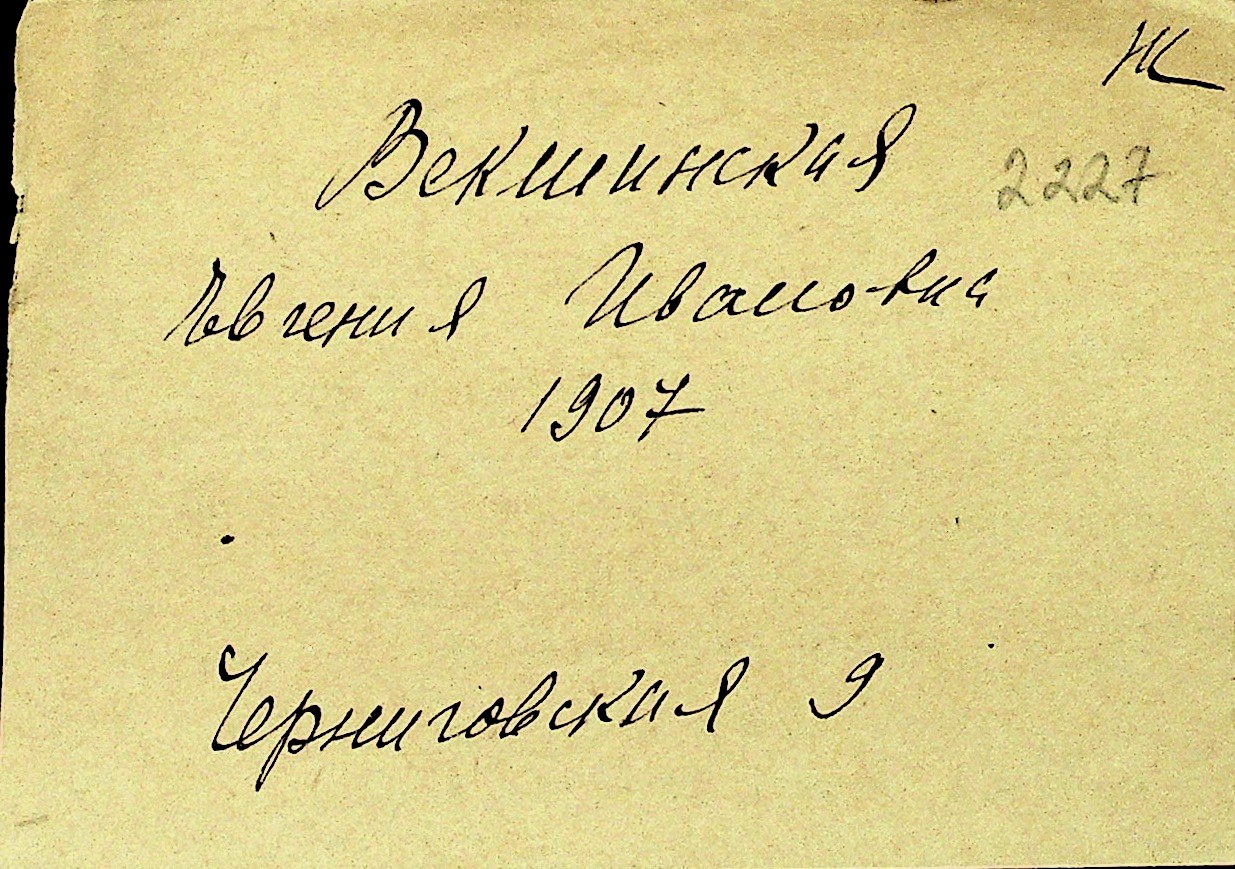 Ж
Векшинская
2227
Евгения Ивановна
1907
Черниговская 9